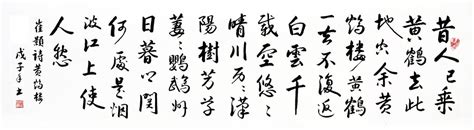 昔人已乘
黄鶴去此
地空余黄
鶴楼黄鶴
一去不復返
白雲千
載空悠悠
晴川历历漢
陽樹芳草
萋萋鸚鵡州
日暮鄉関
何處是烟
波江上使
人愁
崔顥詩黄鶴楼
戊子年书